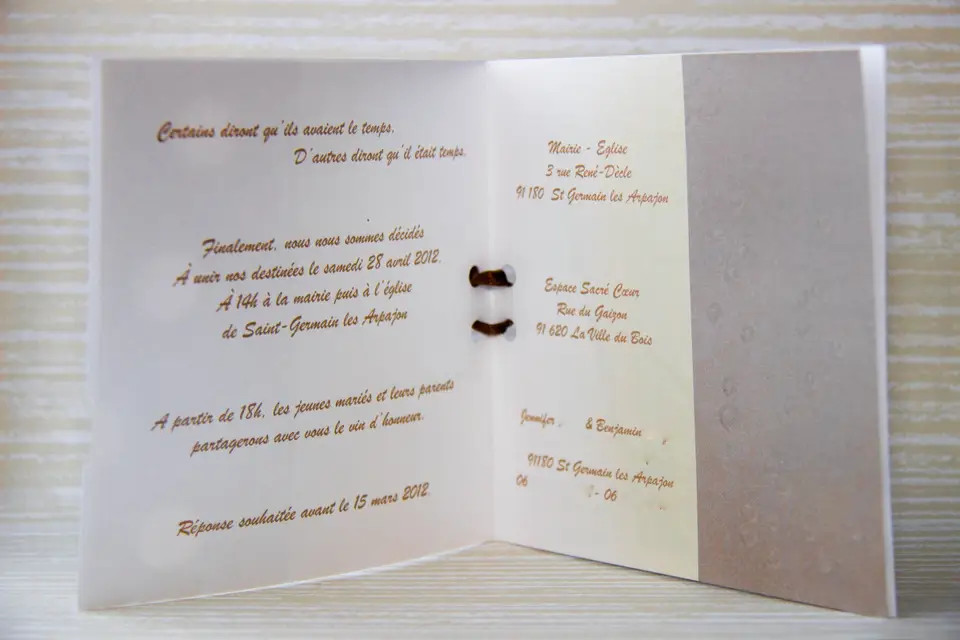 Certains diront qu'ils avaient le temps.
D'autres diront qu'il était temps.
Finalement, nous nous sommes décidés
À unir nos destinées le samedi 28 avril 2012.
À 14h à la mairie puis à l'église
de Saint-Germain les Arpajon
A partir de 18h, les jeunes mariés et leurs parents
partagerons avec vous le vin d'honneur.
Réponse souhaitée avant le 15 mars 2012.
Mairie - Eglise
3 rue René-Dècle
91 180 St Germain les Arpajon
Espace Sacré Cœur
Rue du Gaizon
91 620 La Ville du Bois
Jennifer & Benjamin
91180 St Germain les Arpajon
06 - 06